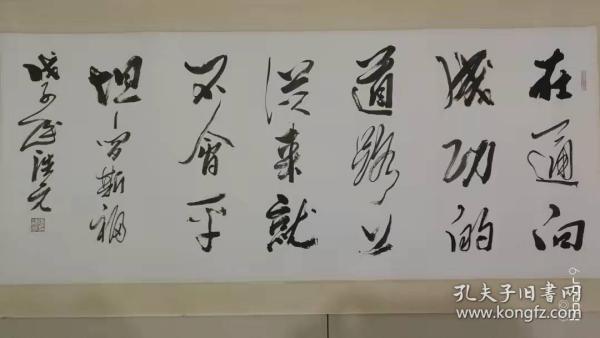 在通向
成功的
道路上
從来就
不會平
坦—罗斯福
戊子浩元
孔夫子旧書网
www.kongfz.com